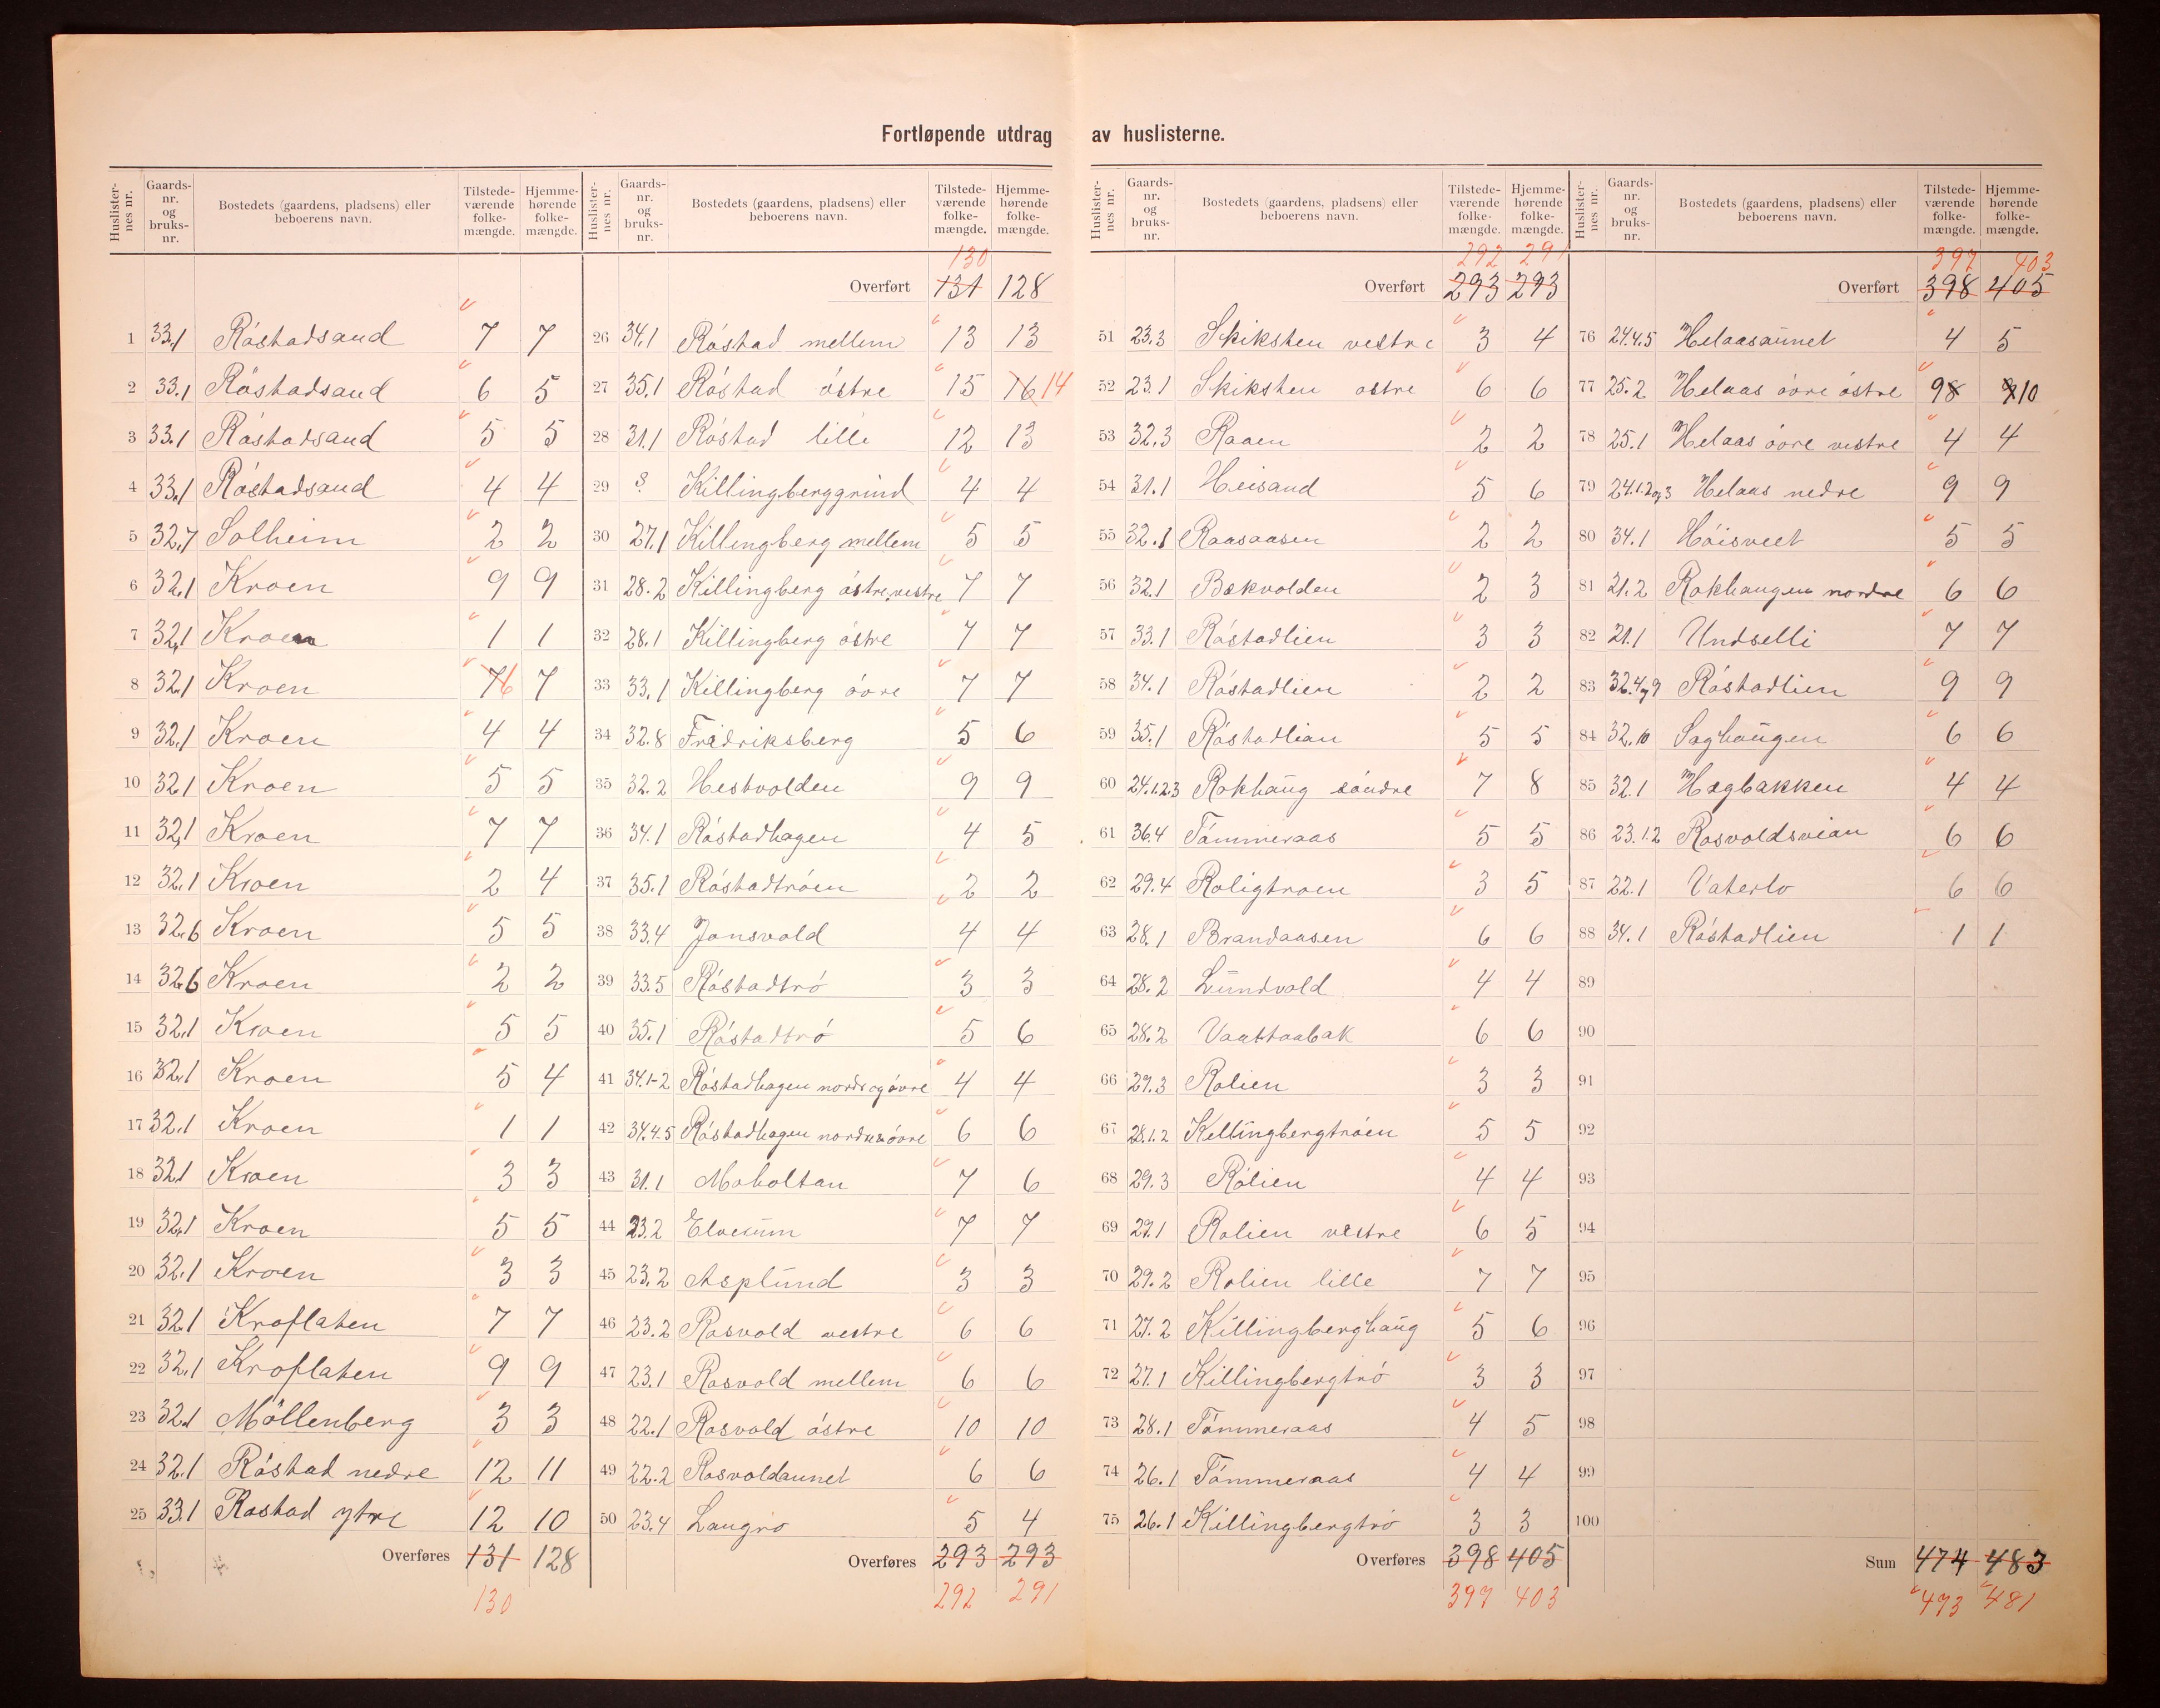 Fortløpende utdrag av huslisterne.
Huslisternes nr. | Gaards-nr. og bruks-nr. | Bostedets (gaardens, pladsens) eller beboerens navn. | Tilstede-værende folke-mængde. | Hjemme-hørende folke-mængde.
1 33.1 Röstadsand 7 7
2 33.1 Röstadsand 6 5
3 33.1 Röstadsand 5 5
4 33.1 Röstadsand 4 4
5 32.7 Solheim 2 2
6 32.1 Kroen 9 9
7 32.1 Kroen 1 1
8 32.1 Kroen 7 6 7
9 32.1 Kroen 4 4
10 32.1 Kroen 5 5
11 32.1 Kroen 7 7
12 32.1 Kroen 2 4
13 32.6 Kroen 5 5
14 32.6 Kroen 2 2
15 32.1 Kroen 5 5
16 32.1 Kroen 5 4
17 32.1 Kroen 1 1
18 32.1 Kroen 3 3
19 32.1 Kroen 5 5
20 32.1 Kroen 3 3
21 32.1 Kroflaten 7 7
22 32.1 Kroflaten 9 9
23 32.1 Möllenberg 3 3
24 32.1 Röstad nedre 12 11
25 33.1 Rostad ytre 12 10
Overføres 131 128
130
Huslisternes nr. | Gaards-nr. og bruks-nr. | Bostedets (gaardens, pladsens) eller beboerens navn. | Tilstede-værende folke-mængde. | Hjemme-hørende folke-mængde.
130
Overført 131 128
26 34.1 Röstad mellem 13 13
27 35.1 Röstad östre 15 16 14
28 31.1 Röstad lille 12 13
29 ? Killingberggrind 4 4
30 27.1 Killingberg mellem 5 5
31 28.2 Killingberg östre vestre 7 7
32 28.1 Killingberg östre 7 7
33 33.1 Killingberg övre 7 7
34 32.8 Fredriksberg 5 6
35 32.2 Hestvolden 9 9
36 34.1 Röstadhagen 4 5
37 35.1 Röstadtröen 2 2
38 33.4 Jonsvold 4 4
39 33.5 Röstadtrö 3 3
40 35.1 Röstadtrö 5 6
41 34.1-2 Röstadhagen nordr og övre 4 4
42 34.4.5 Röstadhagen nordre övre 6 6
43 31.1 Moholtan 7 6
44 23.2 Elverum 7 7
45 23.2 Asplund 3 3
46 23.2 Rosvold vestre 6 6
47 23.1 Rosvold mellem 6 6
48 22.1 Rosvold östre 10 10
49 22.2 Rosvoldaunet 6 6
50 23.4 Langro 5 4
Overføres 293 293
292 291
Huslisternes nr. | Gaards-nr. og bruks-nr. | Bostedets (gaardens, pladsens) eller beboerens navn. | Tilstede-værende folke-mængde. | Hjemme-hørende folke-mængde.
292 291
Overført 293 293
51 23.3 Skiksten vestre 3 4
52 23.1 Skiksten ostre 6 6
53 32.3 Raaen 2 2
54 31.1 Heisand 5 6
55 32.1 Raasaasen 2 2
56 32.1 Bekvolden 2 3
57 33.1 Röstadlien 3 3
58 34.1 Röstadlien 2 2
59 35.1 Röstadlian 5 5
60 24.1.2.3 Rokhaug söndre 7 8
61 36.4 Tömmeraas 5 5
62 29.4 Roligtroen 3 5
63 28.1 Brandaasen 6 6
64 28.2 Lundvold 4 4
65 28.2 Vaattaabak 6 6
66 29.3 Rolien 3 3
67 28.1.2 Killingbergtröen 5 5
68 29.3 Rölien 4 4
69 29.1 Rolien vestre 6 5
70 29.2 Rolien lille 7 7
71 27.2 Killingberghaug 5 6
72 27.1 Killingbergtrö 3 3
73 28.1 Tömmeraas 4 5
74 26.1 Tömmeraas 4 4
75 26.1 Killingbergtrö 3 3
Overføres 398 405
397 403
Huslisternes nr. | Gaards-nr. og bruks-nr. | Bostedets (gaardens, pladsens) eller beboerens navn. | Tilstede-værende folke-mængde. | Hjemme-hørende folke-mængde.
397 403
Overført 398 405
76 24.4.5 Helaasaunet 4 5
77 25.2 Helaas övre östre 9 8 9 10
78 25.1 Helaas övre vestre 4 4
79 24.1.2og3 Helaas nedre 9 9
80 34.1 Höisveet 5 5
81 21.2 Rokhaugen nordre 6 6
82 21.1 Undselli 7 7
83 32.4og9 Röstadlien 9 9
84 32.10 Saghaugen 6 6
85 32.1 Hegbakken 4 4
86 23.1.2 Rosvoldsveian 6 6
87 22.1 Vaterlo 6 6
88 34.1 Röstadlien 1 1
89
90
91
92
93
94
95
96
97
98
99
100
Sum 474 483
473 481